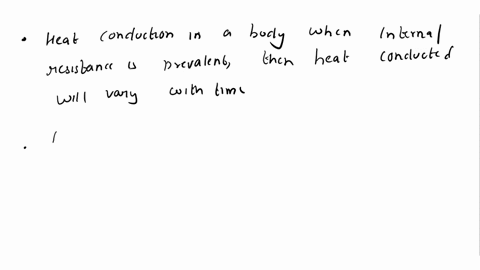 • Heat conduction in a body when internal
resistance is prevalent, then heat conducted
will vary with time
•